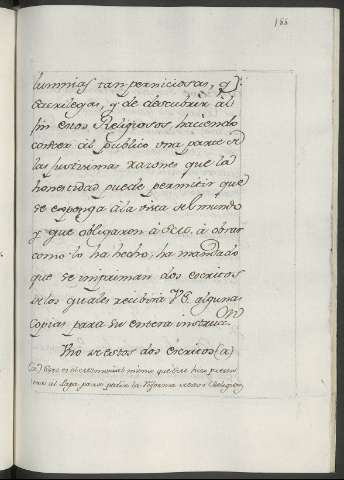 188
lumnias tan perniciosas, y
Sacrilegas, y de descubrir àl
fin estos Religiosos, haciendo
constar àl publico una parte de
las justisimas razones que la
honestidad puede permitir que
se exponga à la vista del mundo
y que obligaron à à obrar
como lo ha hecho; ha mandado
que se impriman dos escritos
de los quales recibirà VS. algunas
copias para su entera instruc.on
Uno de estos dos escritos (a)
(a) Este es el testimonial mismo que se hizo presen
tar al Papa para pedir la Reforma de estos Religiosos